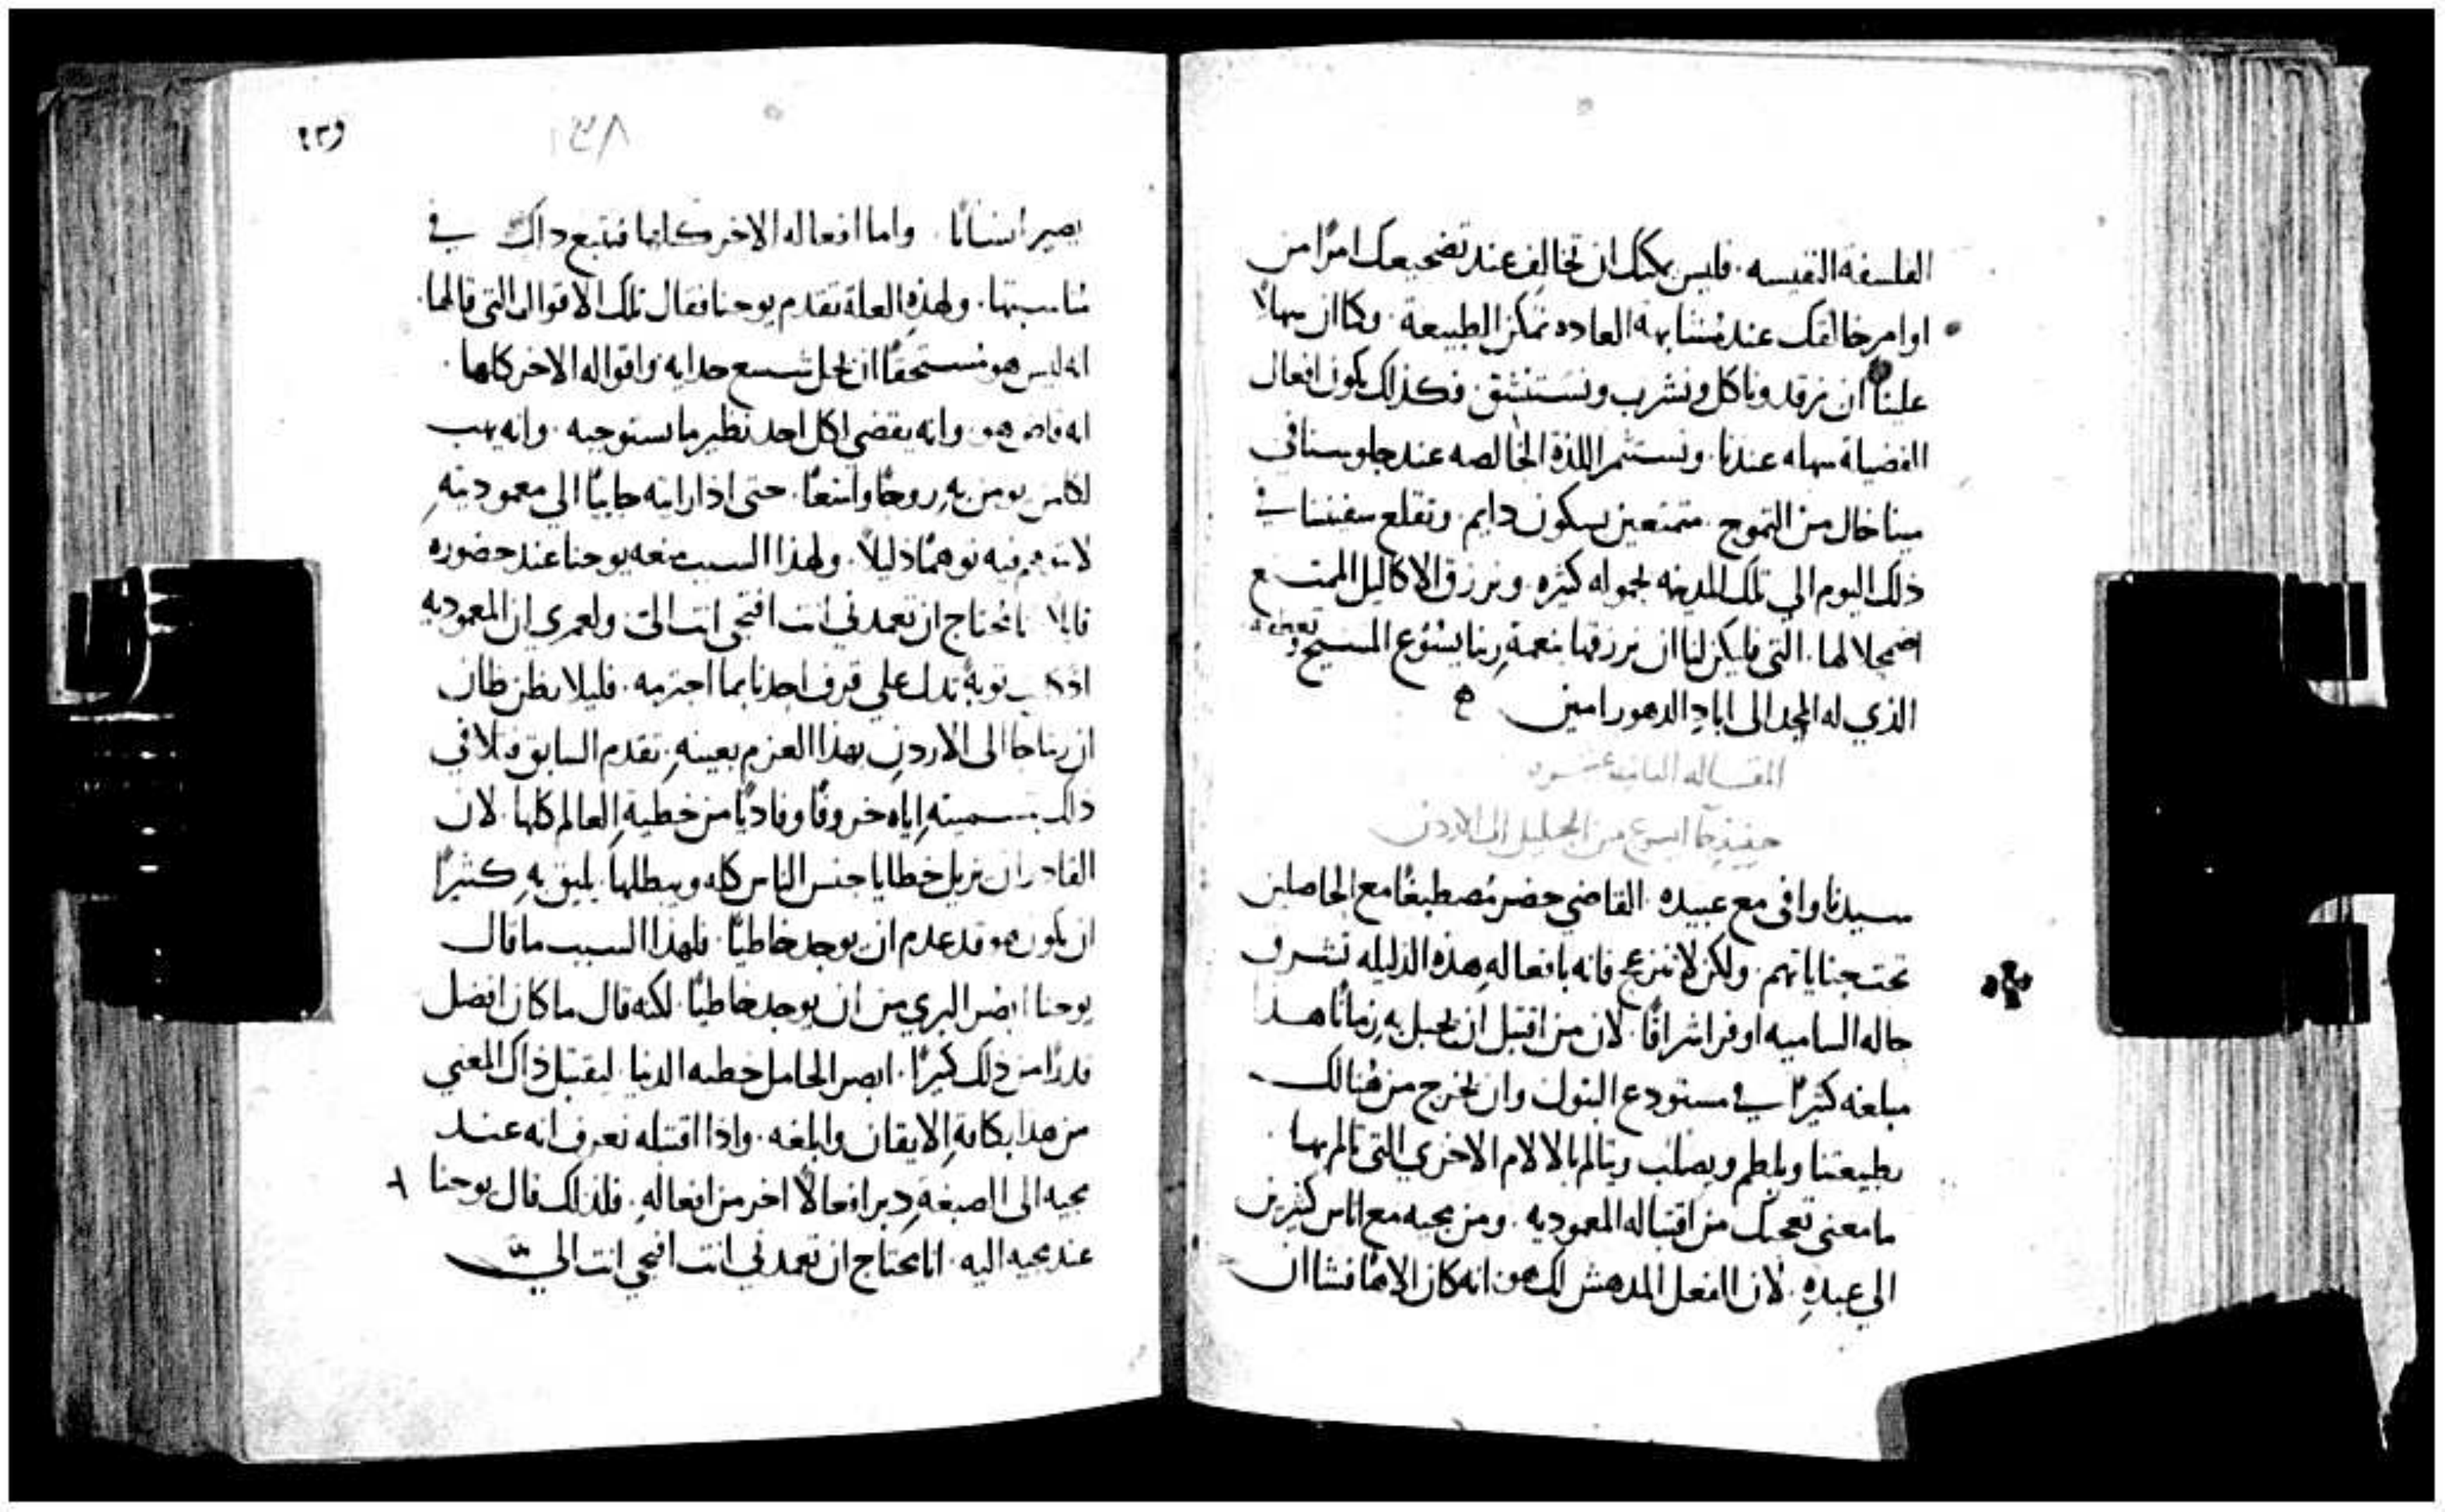 الفلسفة النفيسه. فليس يمكنك ان تخالف عند تضجيعك امرًا من
اوامر خالقك عند مشابهة العاده تمكن الطبيعة. وكما ان سهلاً
علينا ان نرقد وناكل ونشرب ونستنشق. فكذلك يكون افعال
الفضيلة سهله عندنا. ونستثمر اللذة الخالصه عند جلوسنا في
مينا خال من التموج. متمتعين بسكون دايم. وتقلع سفننا في
ذلك اليوم الي تلك المدينه بحموله كثيره. ونرزق الاكاليل الممتنع
اضمحلالها. التي فليكن لنا ان نرزقها بنعمة ربنا يسوع المسيح
الذي له المجد الى اباد الدهور امين
المقاله الثانيه عشره
حينيذ جا ايسوع من الجليل الى الاردن
سيدنا وافى مع عبيده. القاضي حضر مصطبغًا مع الحاصلين
تحت جناياتهم. ولكن لا تنزعج فانه بافعاله هذه الذليله تشرف
حاله الساميه اوفر اشراقًا. لان من اقتبل ان يحبل به زمانًا هذا
مبلغه كثيرًا في مستودع البتول وان يخرج من هنالك
بطبيعتنا ويلطم ويصلب ويتالم بالالام الاخري التي تالم بها.
ما معنى تعجبك من اقتباله المعموديه. ومن مجيه مع اناس كثيرين
الى عبده. لان الفعل المدهش لك هو انه كان الاهًا فشا ان
١٣٨
يصير انسانًا. واما افعاله الاخر كلها فتتبع ذاك في
مناسبتها. ولهذه العلة تقدم يوحنا فقال تلك الاقوال التي قالها.
انه ليس هو مستحقًا ان يحل شسع حدايه واقواله الاخر كلها.
انه قاض هو. وانه يقضي لكل احد نظير ما يستوجبه. وانه يهب
لكل من يومن به روحًا واسعًا. حتى اذا رايته جاييًا الى معموديته
لا تتوهم فيه توهمًا ذليلاً. ولهذا السبب منعه يوحنا عند حضوره
قايلا انا محتاج ان تعمدني انت افتجي انت اليّ. ولعمري ان المعموديه
اذ كانت توبة تدل على قرف احدنا بما اجترمه. فليلا يظن ظان
ان ربنا جا الى الاردن بهذا العزم بعينه. تقدم السابق فتلافى
ذلك بتسميته اياه خروفًا وفاديًا من خطية العالم كلها. لان
القادر ان يزيل خطايا جنس الناس كله ويبطلها. يليق به كثيرًا
ان يكون هو قد عدم ان يوجد خاطيًا. فلهذا السبب ما قال
يوحنا ابصر البري من ان يوجد خاطيًا. لكنه قال ما كان افضل
قدرًا من ذلك كثيرًا. ابصر الحامل خطيه الدنيا. ليقتبل ذاك المعني
من هذا بكافة الايقان وابلغه. واذا اقتبله تعرف انه عند
مجيه الى الصبغة دبر افعالاً اخر من افعاله. فلذلك قال يوحنا
عند مجيه اليه. انا محتاج ان تعمدني انت افتجي انت الي